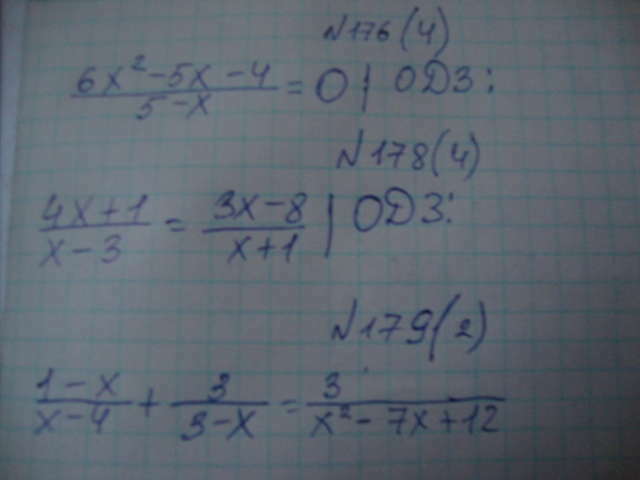 №176(4)
(6x²-5x-4)/(5-x) = 0 | ОДЗ:
№178(4)
(4x+1)/(x-3) = (3x-8)/(x+1) | ОДЗ:
№179(2)
(1-x)/(x-4) + 3/(3-x) = 3/(x²-7x+12)